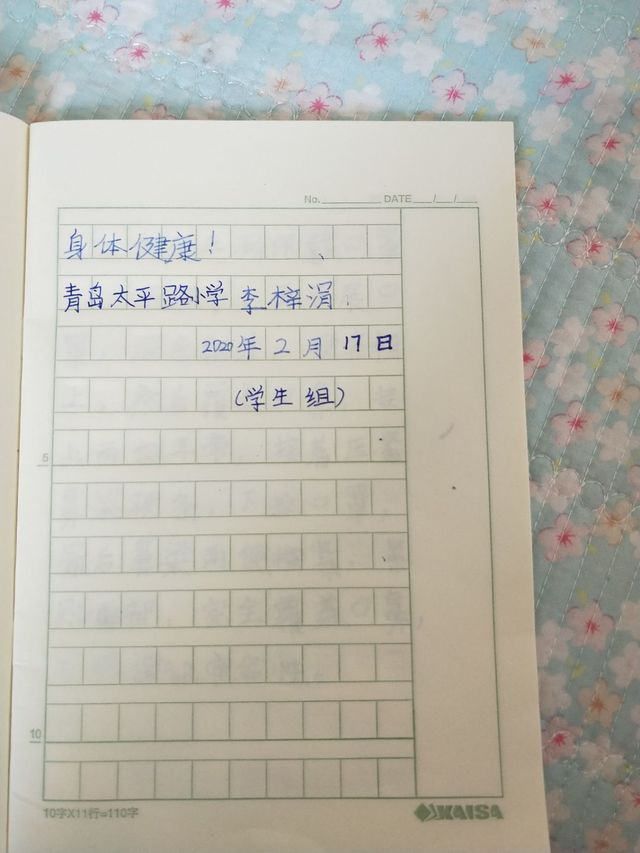 No.________ DATE___/__/___
身体健康！
青岛太平路小学李梓涓.
2020年2月17日
（学生组）
5
10
10字X11行=110字
KAISA